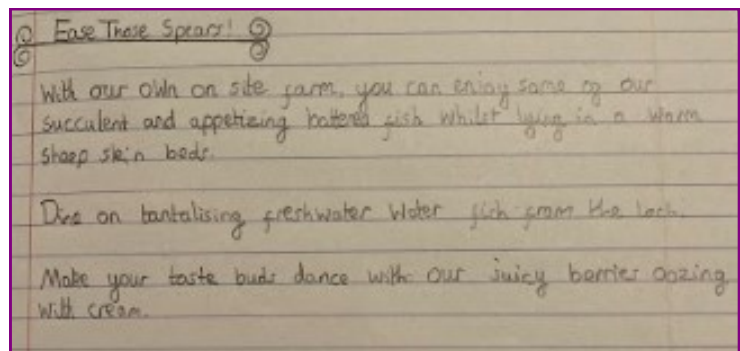 Ease Those Spears!
With our own on site farm, you can enjoy some of our
succulent and appetizing battered fish whilst lying in a warm
sheep skin beds.
Dine on tantalising freshwater Water fish from the loch.
Make your taste buds dance with our juicy berries oozing
with cream.